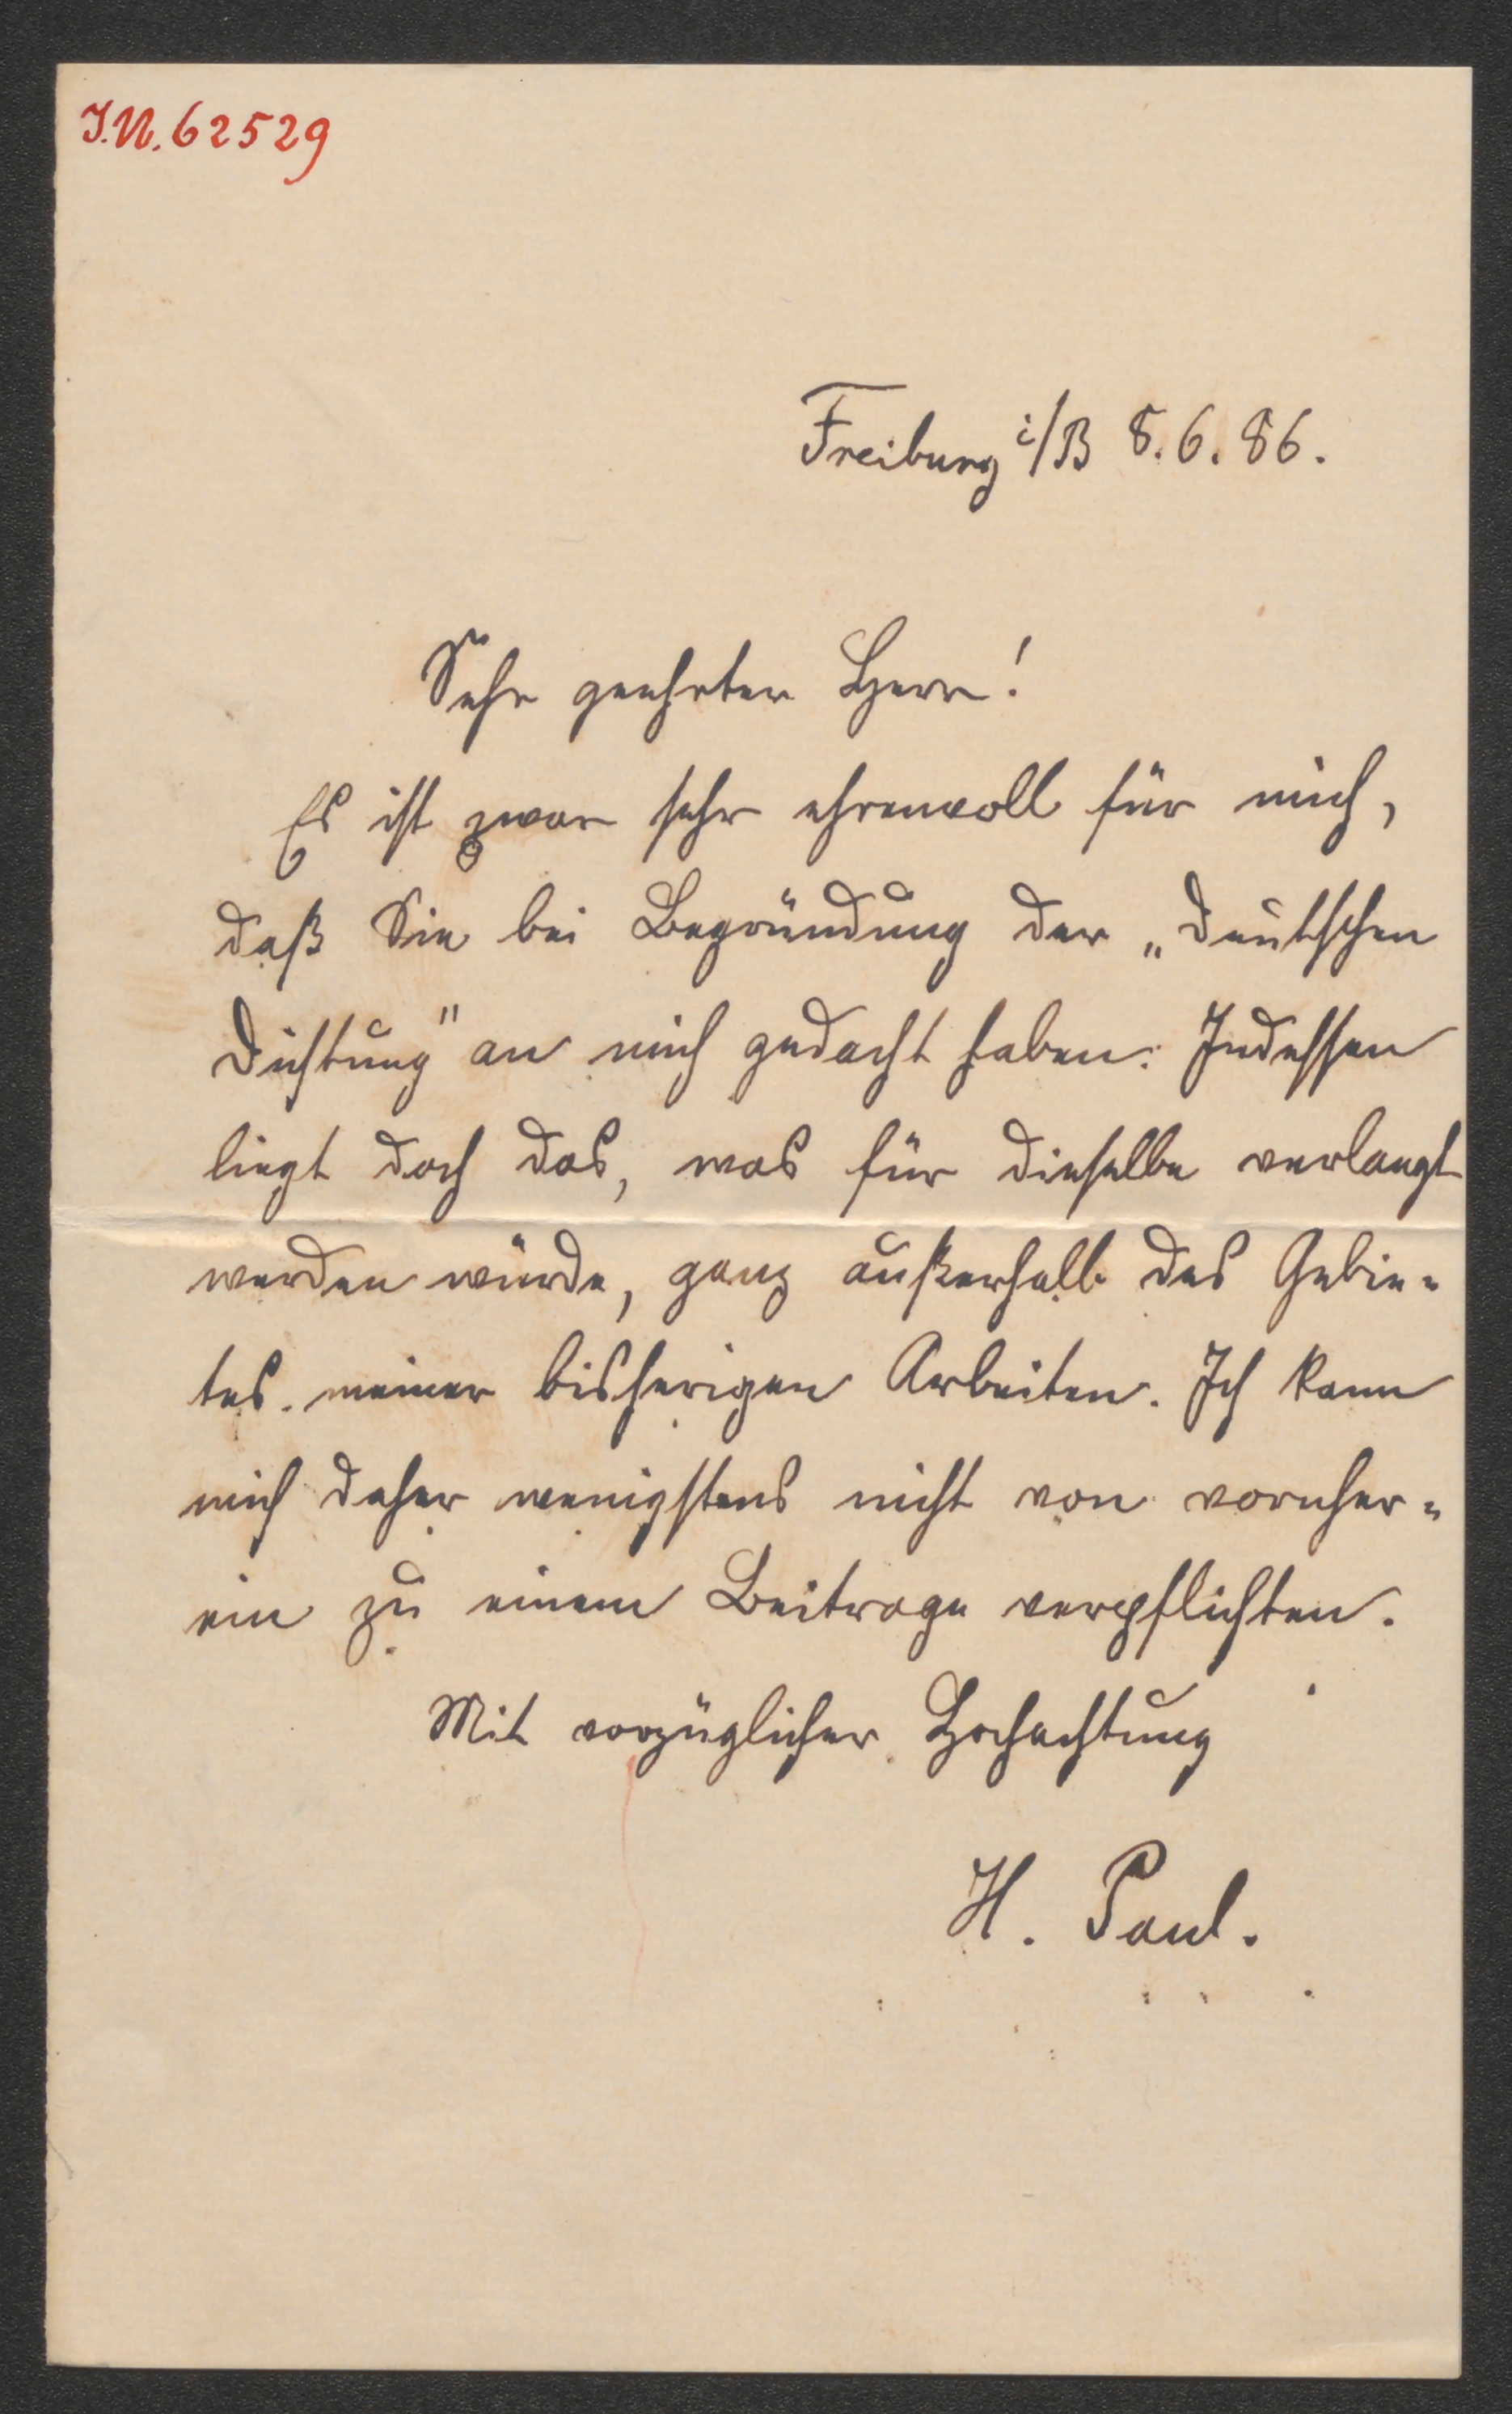 I.N. 62529
Freiburg i/B 8.6.86.
Sehr geehrter Herr!
Es ist zwar sehr ehrenvoll für mich,
daß Sie bei Begründung der „Deutschen
Dichtung" an mich gedacht haben. Indessen
liegt doch das, was für dieselbe verlangt
werden würde, ganz außerhalb des Gebie-
tes meiner bisherigen Arbeiten. Ich kann
mich daher wenigstens nicht von vornher-
ein zu einem Beitrage verpflichten.
Mit vorzüglicher Hochachtung
H. Paul.